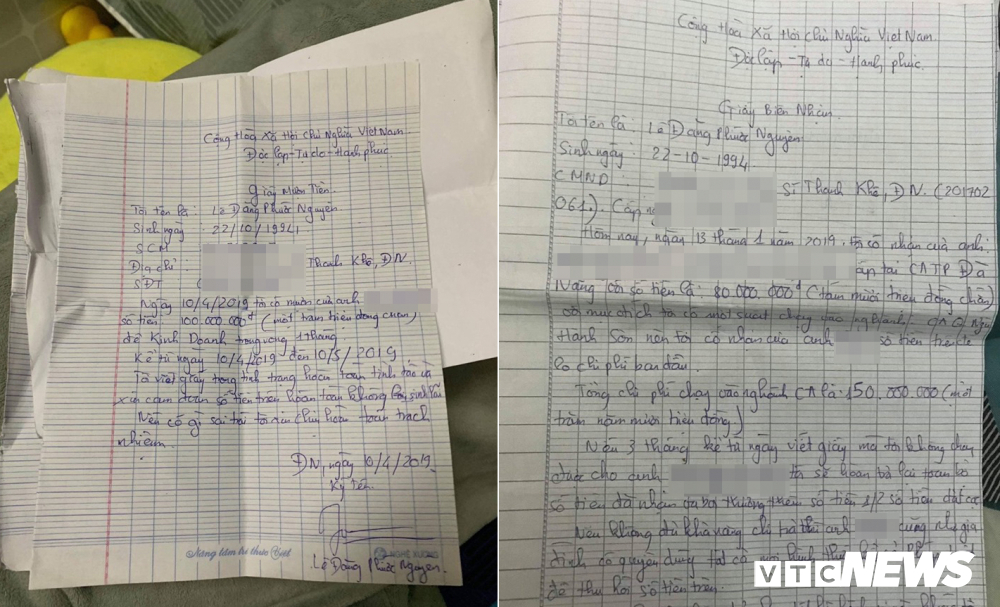 Cộng Hoà Xã Hội Chủ Nghĩa Việt Nam
Độc lập - Tự do - Hạnh phúc
Giấy Mượn Tiền.
Tôi tên là : Lê Đặng Phước Nguyên.
Sinh ngày : 22/10/1994
SCM
Địa chỉ : Thanh Khê, ĐN.
SĐT
Ngày 10/4/2019 tôi có mượn của anh
số tiền 100.000.000đ (một trăm triệu đồng chẵn)
để Kinh Doanh trong vòng 1 tháng
Kể từ ngày 10/4/2019 đến 10/5/2019
Tôi viết giấy trong tình trạng hoàn toàn tỉnh táo và
xin cam đoan số tiền trên hoàn toàn không lãi sinh lãi
Nếu có gì sai trái tôi xin chịu hoàn toàn trách
nhiệm.
ĐN, ngày 10/4/2019
Ký Tên
Nâng tầm tri thức Việt
Lê Đặng Phước Nguyên.
Cộng Hoà Xã Hội Chủ Nghĩa Việt Nam.
Độc lập - Tự do - Hạnh phúc.
Giấy Biên Nhận.
Tôi tên là : Lê Đặng Phước Nguyên.
Sinh ngày : 22-10-1994.
CMND : Sĩ Thanh Khê, ĐN. (201702
061). Cấp
Hôm nay, ngày 13 tháng 1 năm 2019, tôi có nhận của anh
cấp tại CATP Đà
Nẵng với số tiền là : 80.000.000đ (tám mươi triệu đồng chẵn)
với mục đích tôi có một suất chạy vào nghành CA Q Ngũ
Hành Sơn nên tôi có nhận của anh số tiền trên để
lo chi phí ban đầu.
Tổng chi phí chạy vào nghành CA là : 150.000.000 (một
trăm năm mươi triệu đồng)
Nếu 3 tháng kể từ ngày viết giấy mà tôi không chạy
được cho anh tôi sẽ hoàn trả lại toàn bộ
số tiền đã nhận và bồi thường thêm số tiền 1/2 số tiền đặt cọc
Nếu không đủ khả năng chi trả thì anh cũng như gia
đình có quyền dùng tất cả mọi hình thức
để thu hồi số tiền trên.
VTC NEWS